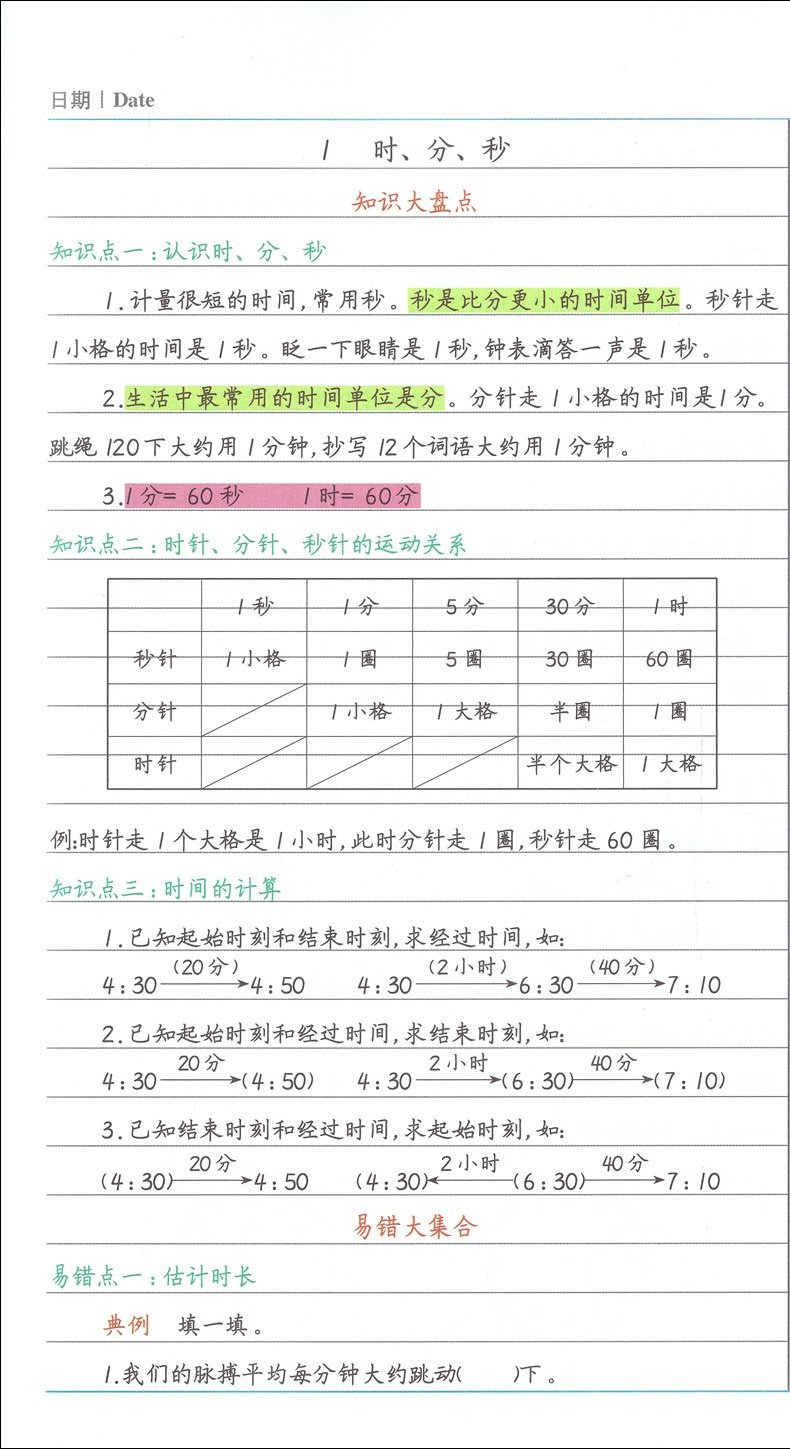 日期 | Date
1 时、分、秒
知识大盘点
知识点一:认识时、分、秒
1.计量很短的时间,常用秒。秒是比分更小的时间单位。秒针走
1小格的时间是1秒。眨一下眼睛是1秒,钟表滴答一声是1秒。
2.生活中最常用的时间单位是分。分针走1小格的时间是1分。
跳绳120下大约用1分钟,抄写12个词语大约用1分钟。
3.1分=60秒 1时=60分
知识点二:时针、分针、秒针的运动关系
1秒 1分 5分 30分 1时
秒针 1小格 1圈 5圈 30圈 60圈
分针 1小格 1大格 半圈 1圈
时针 半个大格 1大格
例:时针走1个大格是1小时,此时分针走1圈,秒针走60圈。
知识点三:时间的计算
1.已知起始时刻和结束时刻,求经过时间,如:
(20分) (2小时) (40分)
4:30→4:50 4:30→6:30→7:10
2.已知起始时刻和经过时间,求结束时刻,如:
20分 2小时 40分
4:30→(4:50) 4:30→(6:30)→(7:10)
3.已知结束时刻和经过时间,求起始时刻,如:
20分 2小时 40分
(4:30)→4:50 (4:30)←(6:30)→7:10
易错大集合
易错点一:估计时长
典例 填一填。
1.我们的脉搏平均每分钟大约跳动( )下。